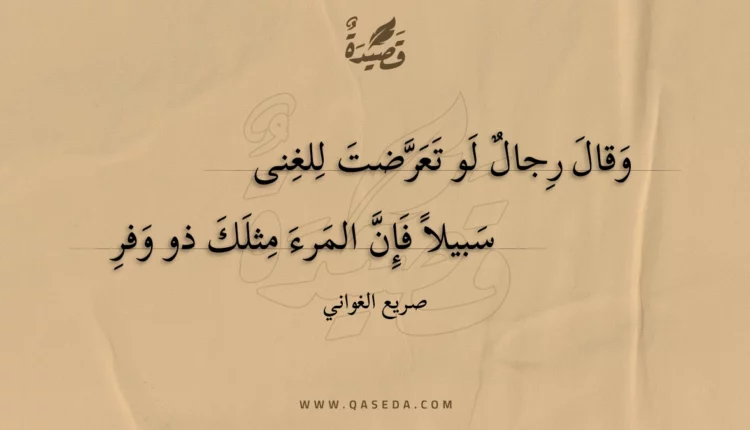 قَصِيدَةٌ
وَقالَ رِجالٌ لَو تَعَرَّضتَ لِلغِنى
سَبيلاً فَإِنَّ المَرءَ مِثلَكَ ذو وَفرِ
صريع الغواني
WWW.QASEDA.COM